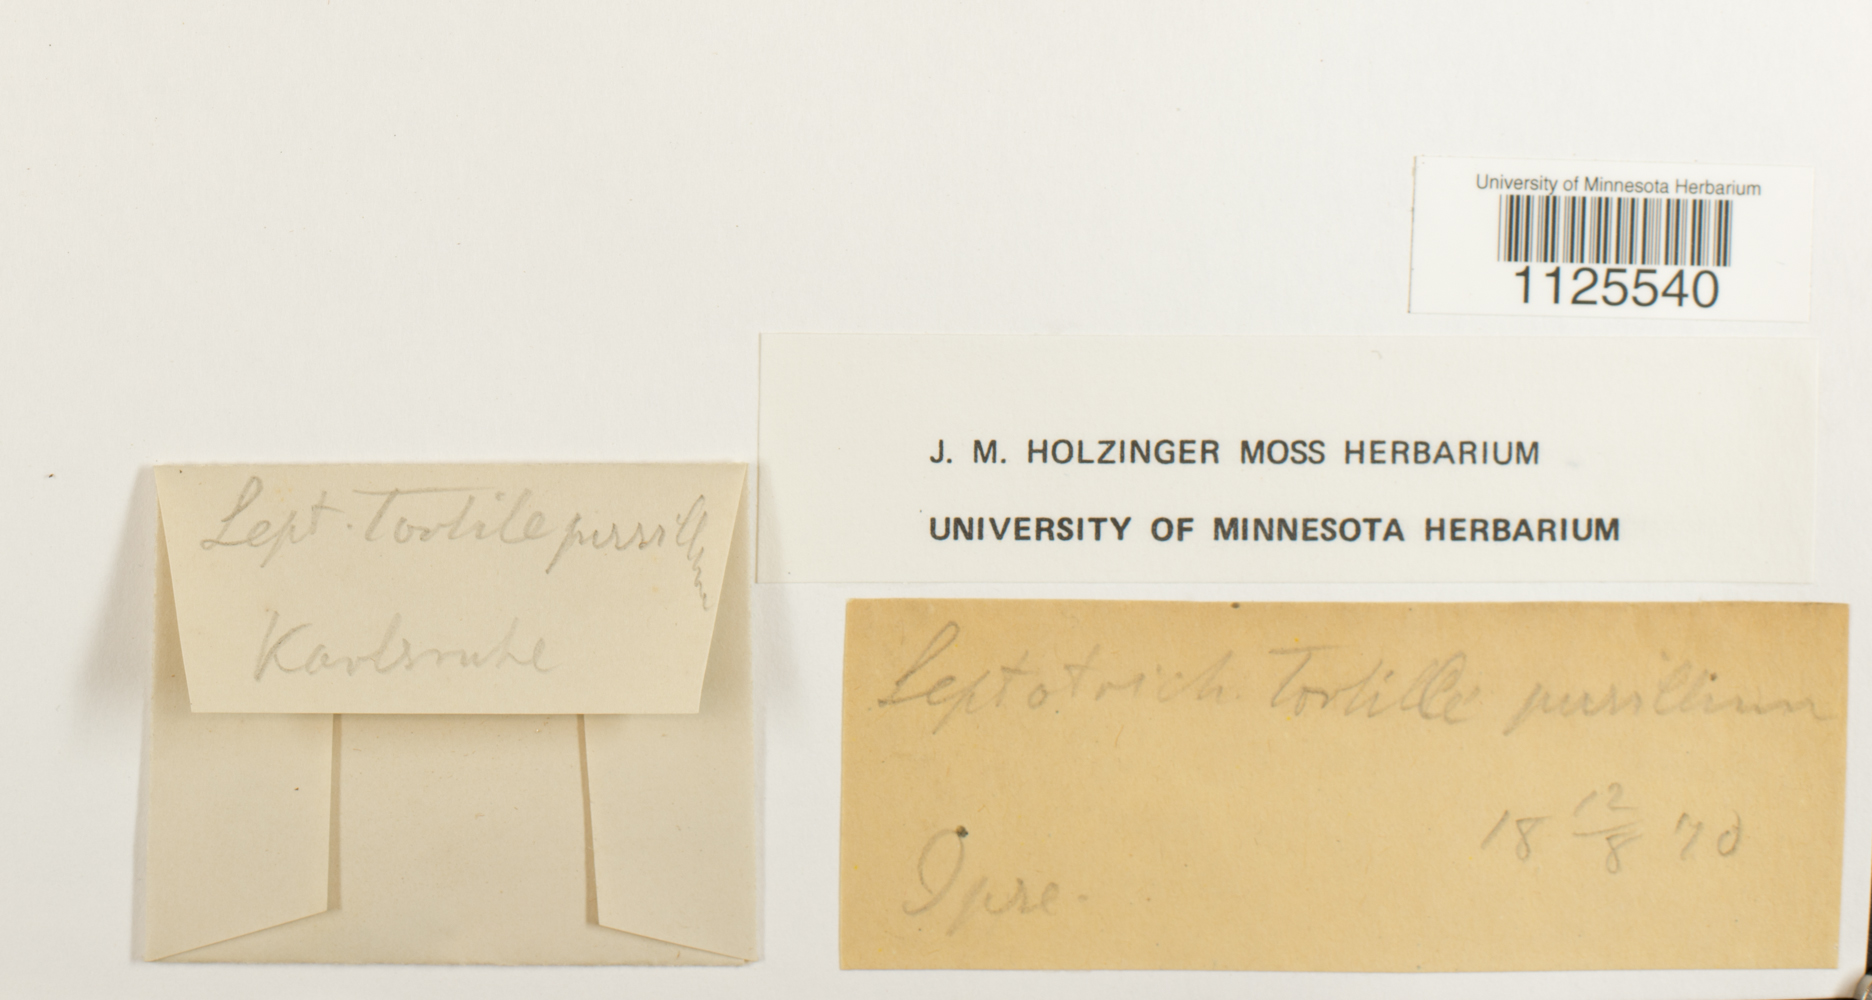 University of Minnesota Herbarium
1125540
J. M. HOLZINGER MOSS HERBARIUM
UNIVERSITY OF MINNESOTA HERBARIUM
Lept. Tortile pussillum
Karlsruhe
Leptotrich. Tortille pussillum
18 12/8 70
Ipse.